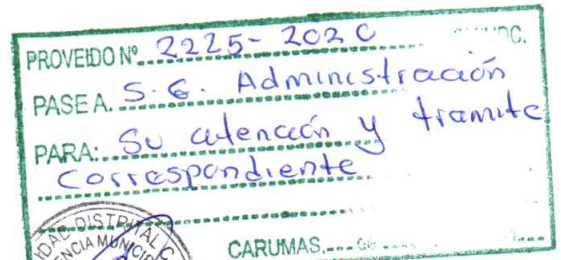 PROVEIDO Nº 2225-2020
PASE A. S.G. Administración
PARA: Su atención y tramite
Correspondiente
DISTRITAL
CARUMAS,